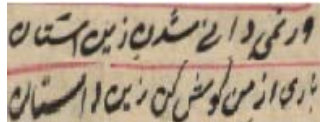 ور نمی دانے شدن زین استان
باری از من گوش کن زین داستان